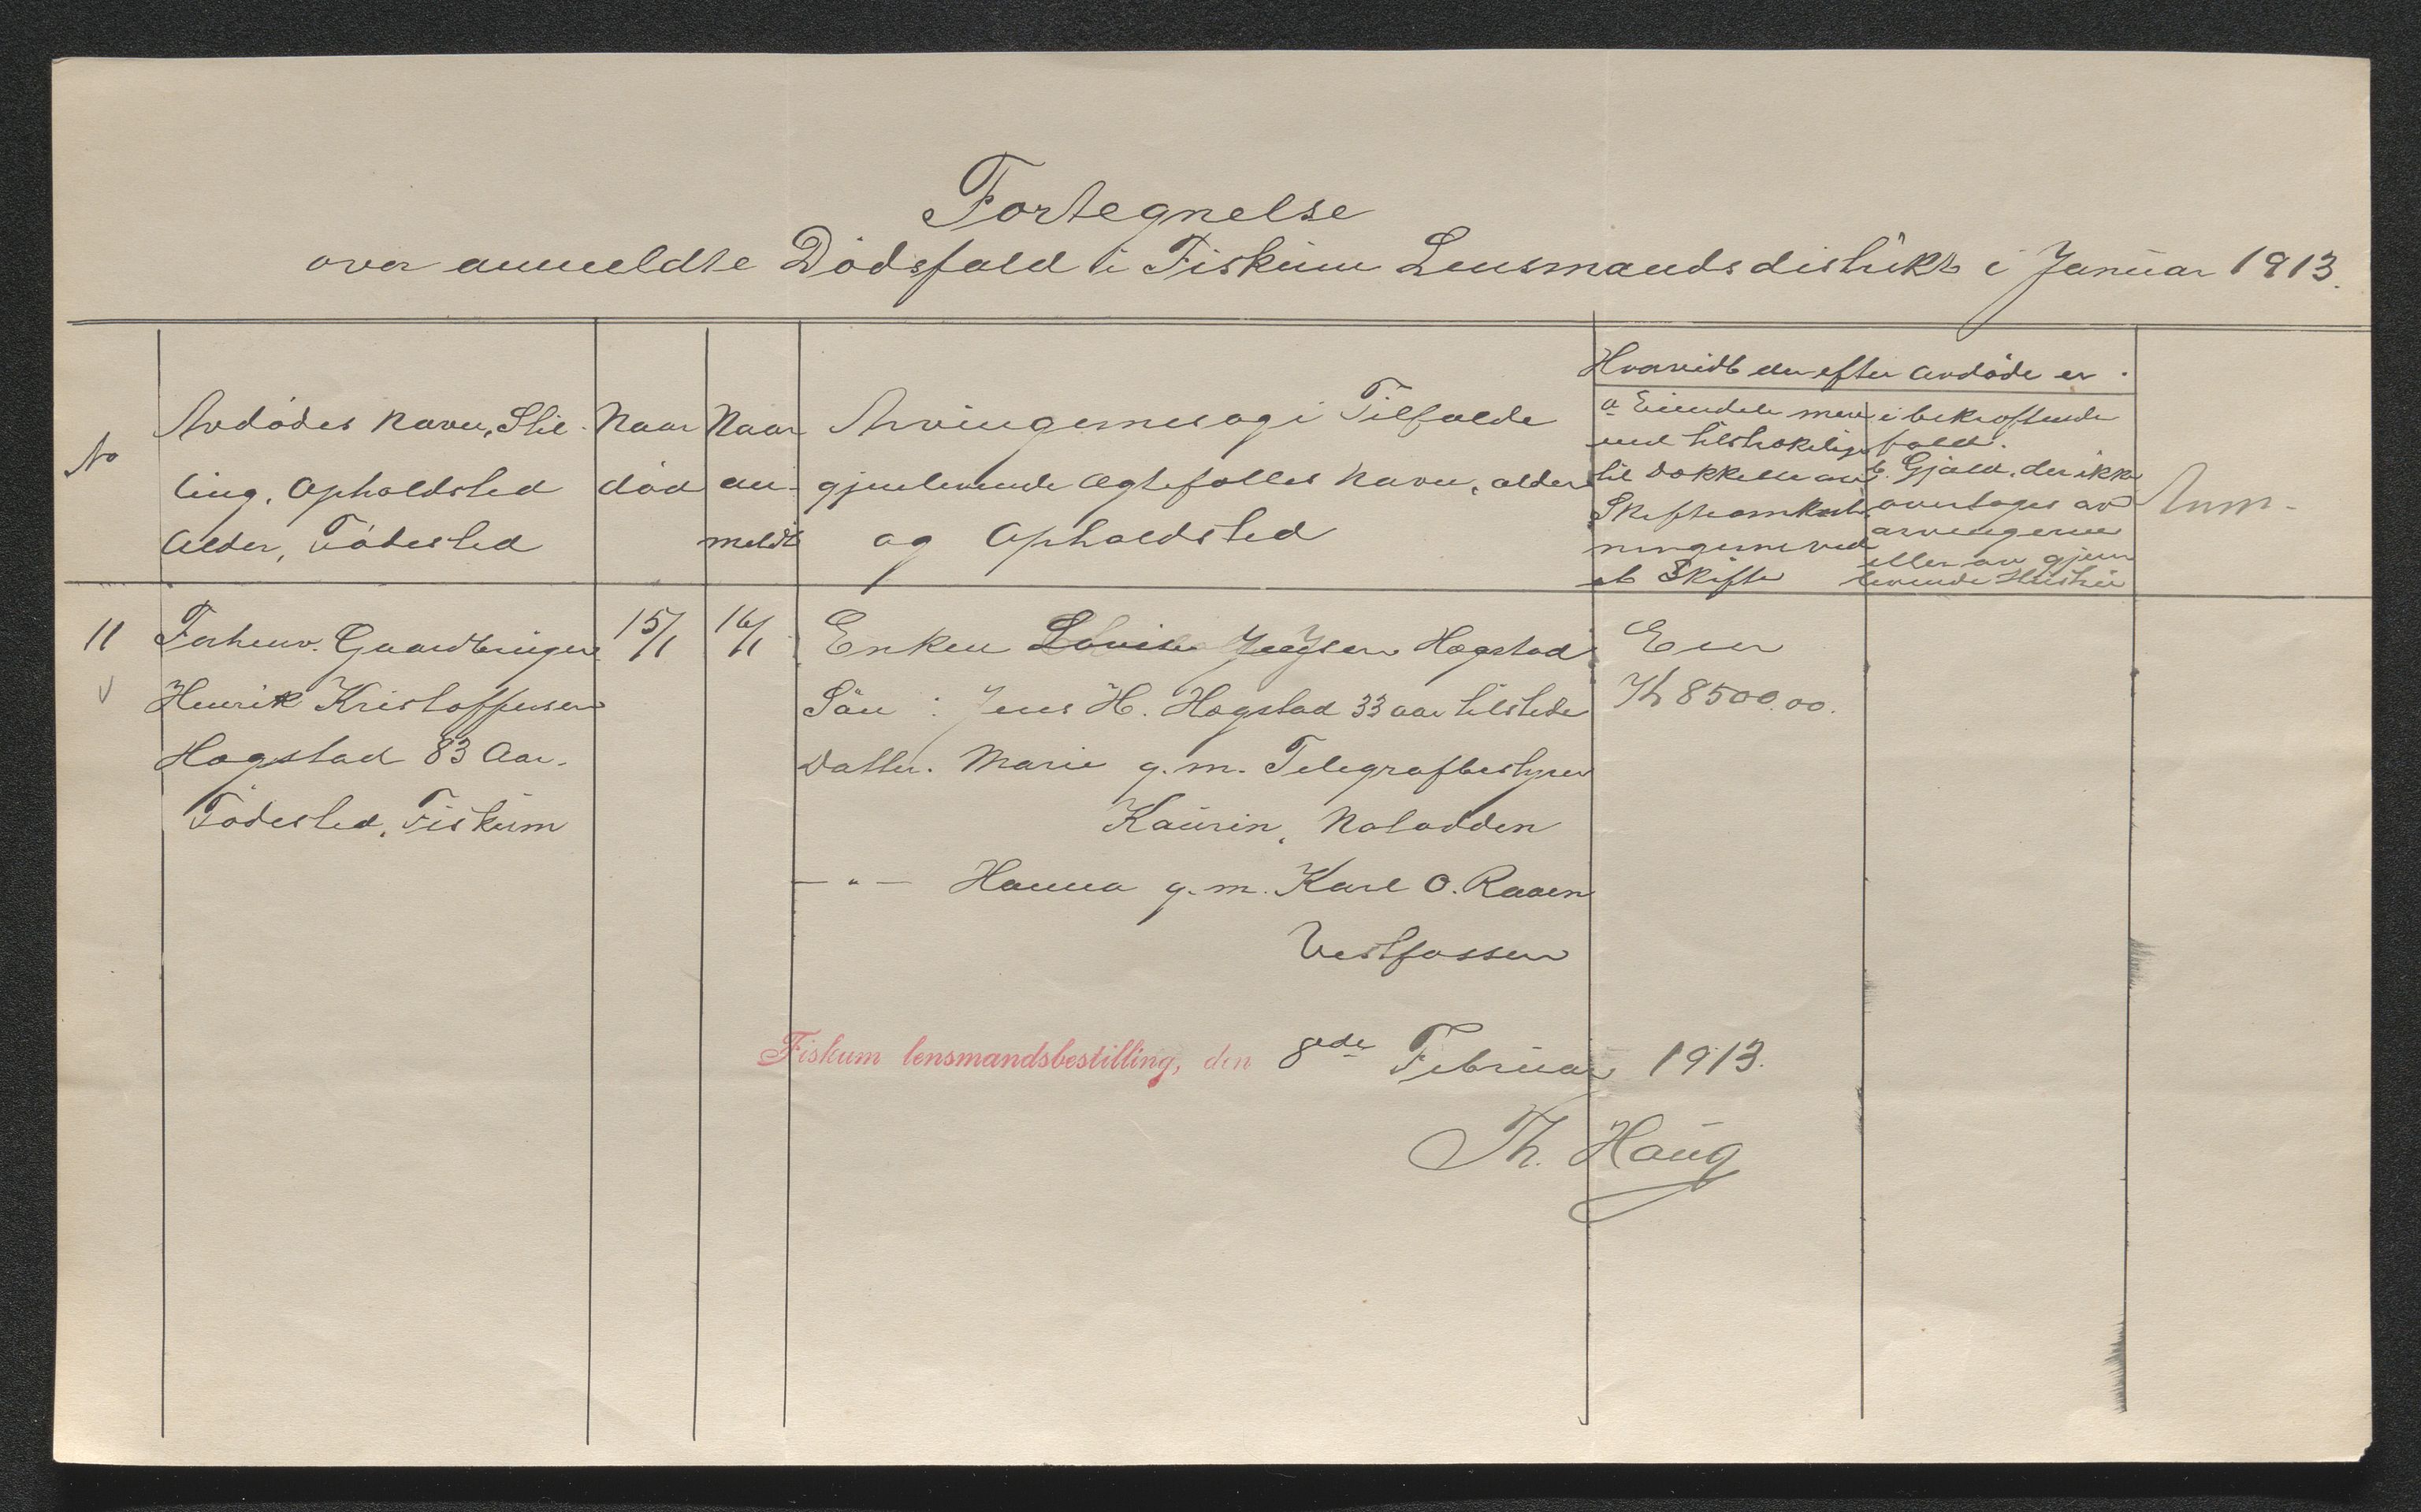 Fortegnelse
over anmeldte Dødsfald i Fiskum Lensmandsdistrikt i Januar 1913.
No
Avdødes Navn, Stil-
ling, Opholdsted
Alder, Fødested
Naar
død
Naar
an-
meldt
Arvingernes og i Tilfælde
gjenlevende Ægtefælles Navn, alder
og Opholdsted
Hvorvidt der efter avdøde er.
a Eiendele mere
end tilstrækelige
til Dækkelse av
Skifteomkost-
ningerne ved
et Skifte
i bekræftende
fald.
b. Gjæld, der ikke
overtages av
arvingerne
eller av gjen
levende Hustru
Anm.
11
Forhenv. Gaardbruger
Henrik Kristoffersen
Hogstad 83 Aar.
Fødested, Fiskum
15/1
16/1
Enken Lovise Hogstad
Søn: Jens H. Hogstad 33 aar tilstede
Datter. Marie g. m. Telegrafbestyrer
Kaurin, Notodden
— " — Hanna g. m. Karl O. Raaen
Vestfossen
Eier
Kr 8500.00.
Fiskum lensmandsbestilling, den 8de Februar 1913.
Th. Haug